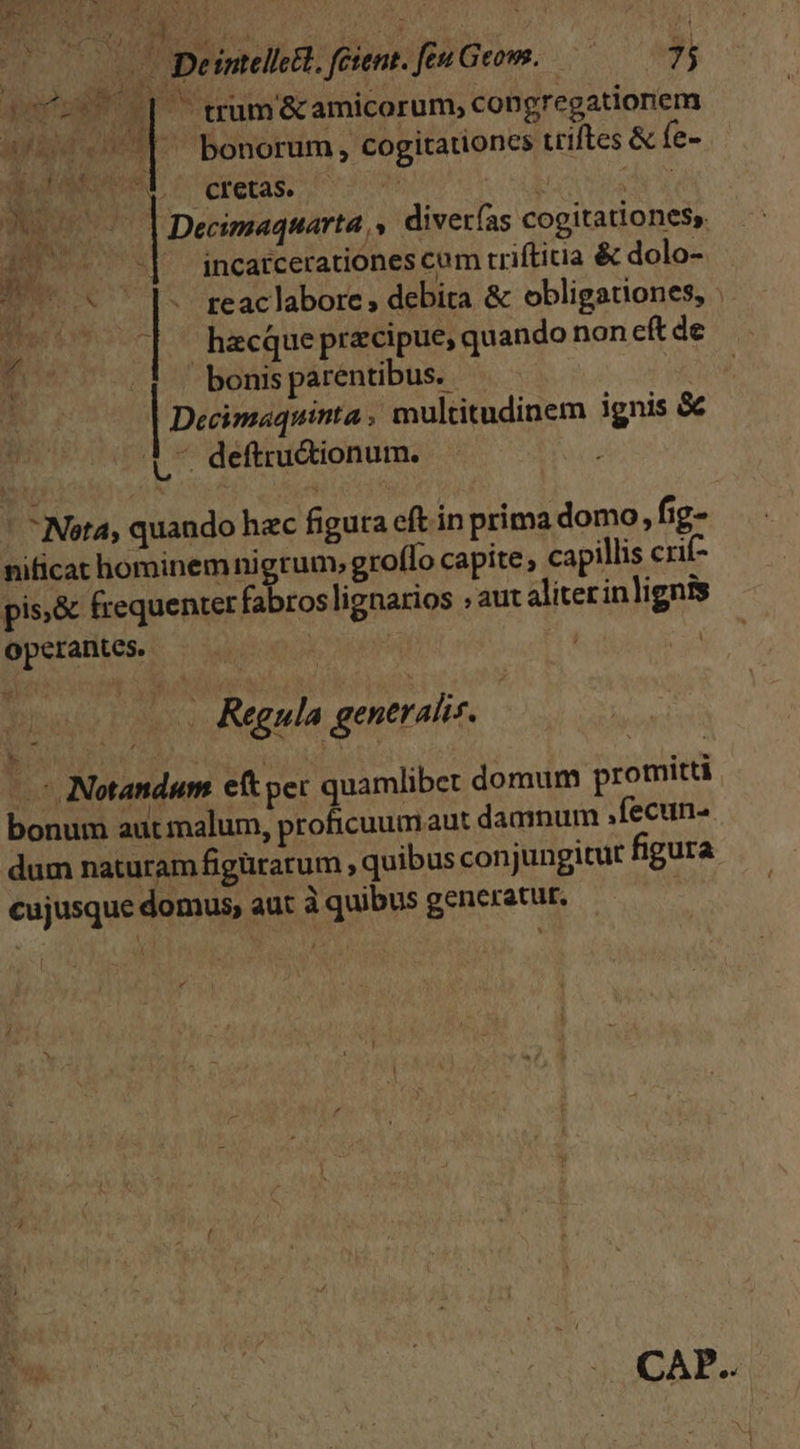 De intellect. ſcient. ſeu Geom. 75
trum & amicorum, congregationem
bonorum, cogitationes triſtes & ſe-
cretas.
Decimaquarta, diverſas cogitationes,
incarcerationes cum triſtitia & dolo-
re ac labore, debita & obligationes,
hæcque præcipue, quando non eſt de
bonis parentibus.
Decimaquinta, multitudinem ignis &
deſtructionum.
Nota, quando hæc figura eſt in prima domo, ſig-
nificat hominem nigrum, groſſo capite, capillis criſ-
pis, & frequenter fabros lignarios, aut aliter in lignis
operantes.
Regula generalis.
Notandum eſt per quamlibet domum promitti
bonum aut malum, proficuum aut damnum, ſecun-
dum naturam figurarum, quibus conjungitur figura
cujusque domus, aut à quibus generatur.
CAP.